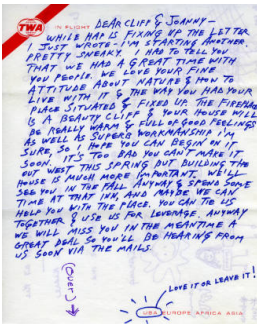 TWA
IN FLIGHT
DEAR CLIFF & JOANNY -
WHILE HAP IS FIXING UP THE LETTER
I JUST WROTE - I'M STARTING ANOTHER.
PRETTY SNEAKY. I HAD TO TELL YOU
THAT WE HAD A GREAT TIME WITH
YOU PEOPLE. WE LOVE YOUR FINE
ATTITUDE ABOUT NATURE & HOW TO
LIVE WITH IT & THE WAY YOU HAD YOUR
PLACE SITUATED & FIXED UP. THE FIREPLACE
IS A BEAUTY CLIFF & YOUR HOUSE WILL
BE REALLY WARM & FULL OF GOOD FEELINGS
AS WELL AS SUPERB WORKMANSHIP I'M
SURE. SO I HOPE YOU CAN BEGIN ON IT
SOON. IT'S TOO BAD YOU CAN'T MAKE IT
OUT WEST THIS SPRING BUT BUILDING THE
HOUSE IS MUCH MORE IMPORTANT. WE'LL
SEE YOU IN THE FALL ANYWAY & SPEND SOME
TIME AT THAT INK, AND MAYBE WE CAN
HELP YOU WITH THE PLACE. YOU CAN TIE US
TOGETHER & USE US FOR LEVERAGE. ANYWAY
WE WILL MISS YOU IN THE MEANTIME A
GREAT DEAL SO YOU'LL BE HEARING FROM
US SOON VIA THE MAILS.
(OVER)
LOVE IT OR LEAVE IT!
USA EUROPE AFRICA ASIA